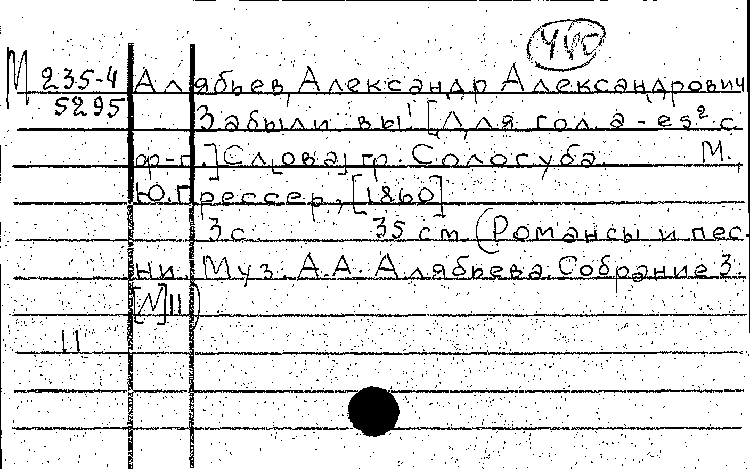 440
М 235-4 Алябьев, Александр Александрович
5295 Забыли вы! [Для гол. a-es² с
ф-п.] Сл[ова] гр. Сологуба. М.,
Ю. Грессер, [1860]
3 с. 35 см. (Романсы и пес-
ни. Муз. А.А. Алябьева. Собрание 3.
[N]11)
11